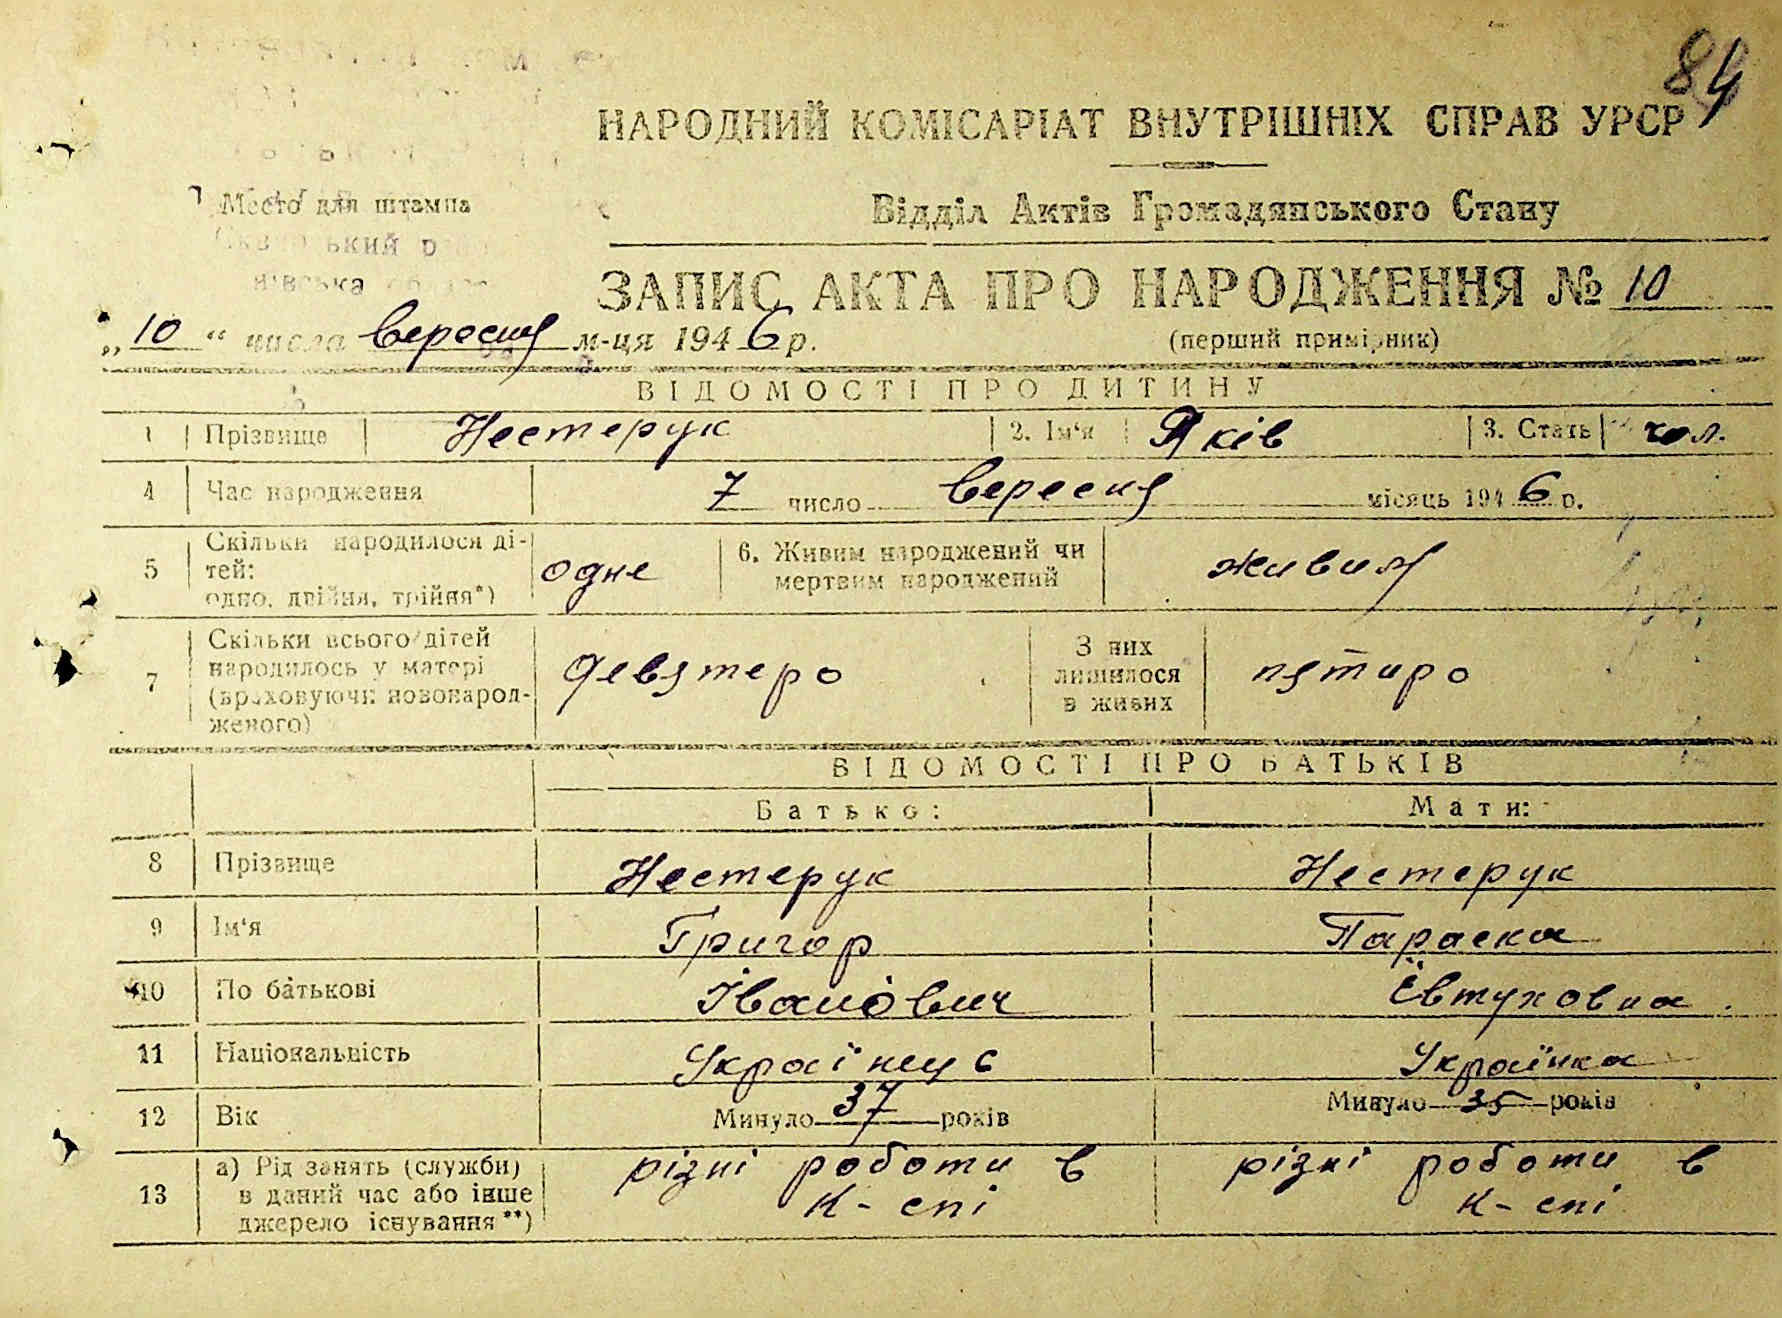 84
НАРОДНИЙ КОМІСАРІАТ ВНУТРІШНІХ СПРАВ УРСР
Место для штампа
Відділ Актів Громадянського Стану
ЗАПИС АКТА ПРО НАРОДЖЕННЯ № 10
„10“ числа вересня м-ця 1946 р.
(перший примірник)
ВІДОМОСТІ ПРО ДИТИНУ
1 Прізвище Нестерук 2. Ім'я Яків 3. Стать чол.
4 Час народження 7 число вересня місяць 1946 р.
5 Скільки народилося ді-
тей:
одно, двійня, трійня*) одне 6. Живим народжений чи
мертвим народжений живим
7 Скільки всього дітей
народилось у матері
(враховуючи новонарод-
женого) девятеро З них
лишилося
в живих пятиро
ВІДОМОСТІ ПРО БАТЬКІВ
Батько: Мати:
8 Прізвище Нестерук Нестерук
9 Ім'я Григор Параска
10 По батькові Іванович Євтуховна
11 Національність Українець Українка
12 Вік Минуло 37 років Минуло 35 років
13 а) Рід занять (служби)
в даний час або інше
джерело існування**) різні роботи в
к-спі різні роботи в
к-спі